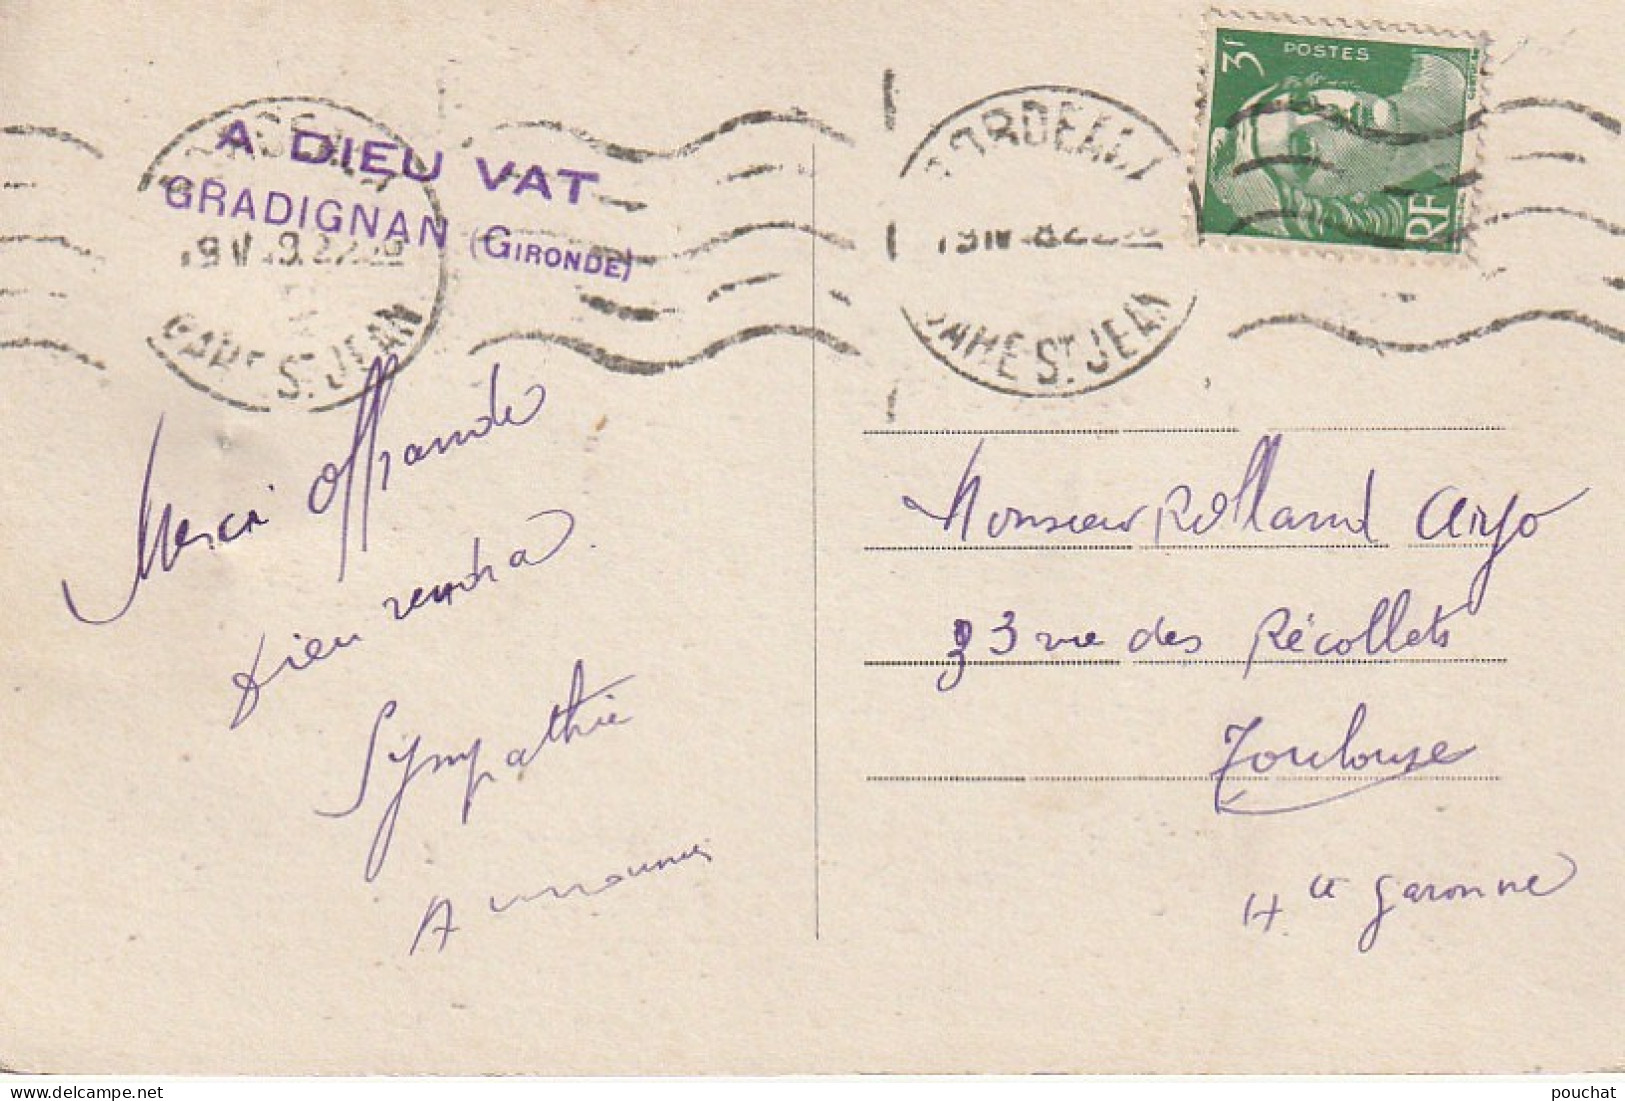 A DIEU VAT
GRADIGNAN (GIRONDE)
GARE ST JEAN
Merci offrande
Dieu rendra.
Sympathie
BORDEAUX
GARE ST JEAN
3F
POSTES
RF
Monsieur Rolland
33 rue des Récollets
Toulouse
Hte Garonne
pouchat